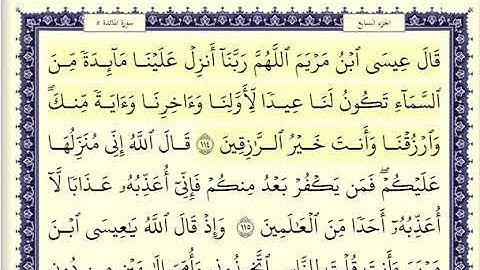 الجزء السابع
سورة المائدة ٥
قَالَ عِيسَى ٱبْنُ مَرْيَمَ ٱللَّهُمَّ رَبَّنَآ أَنزِلْ عَلَيْنَا مَآئِدَةً مِّنَ
ٱلسَّمَآءِ تَكُونُ لَنَا عِيدًا لِّأَوَّلِنَا وَءَاخِرِنَا وَءَايَةً مِّنكَ ۖ
وَٱرْزُقْنَا وَأَنتَ خَيْرُ ٱلرَّٰزِقِينَ ١١٤ قَالَ ٱللَّهُ إِنِّى مُنَزِّلُهَا
عَلَيْكُمْ ۖ فَمَن يَكْفُرْ بَعْدُ مِنكُمْ فَإِنِّىٓ أُعَذِّبُهُۥ عَذَابًا لَّآ
أُعَذِّبُهُۥٓ أَحَدًا مِّنَ ٱلْعَٰلَمِينَ ١١٥ وَإِذْ قَالَ ٱللَّهُ يَٰعِيسَى ٱبْنَ
مَرْيَمَ ءَأَنتَ قُلْتَ لِلنَّاسِ ٱتَّخِذُونِى وَأُمِّىَ إِلَٰهَيْنِ مِن دُونِ